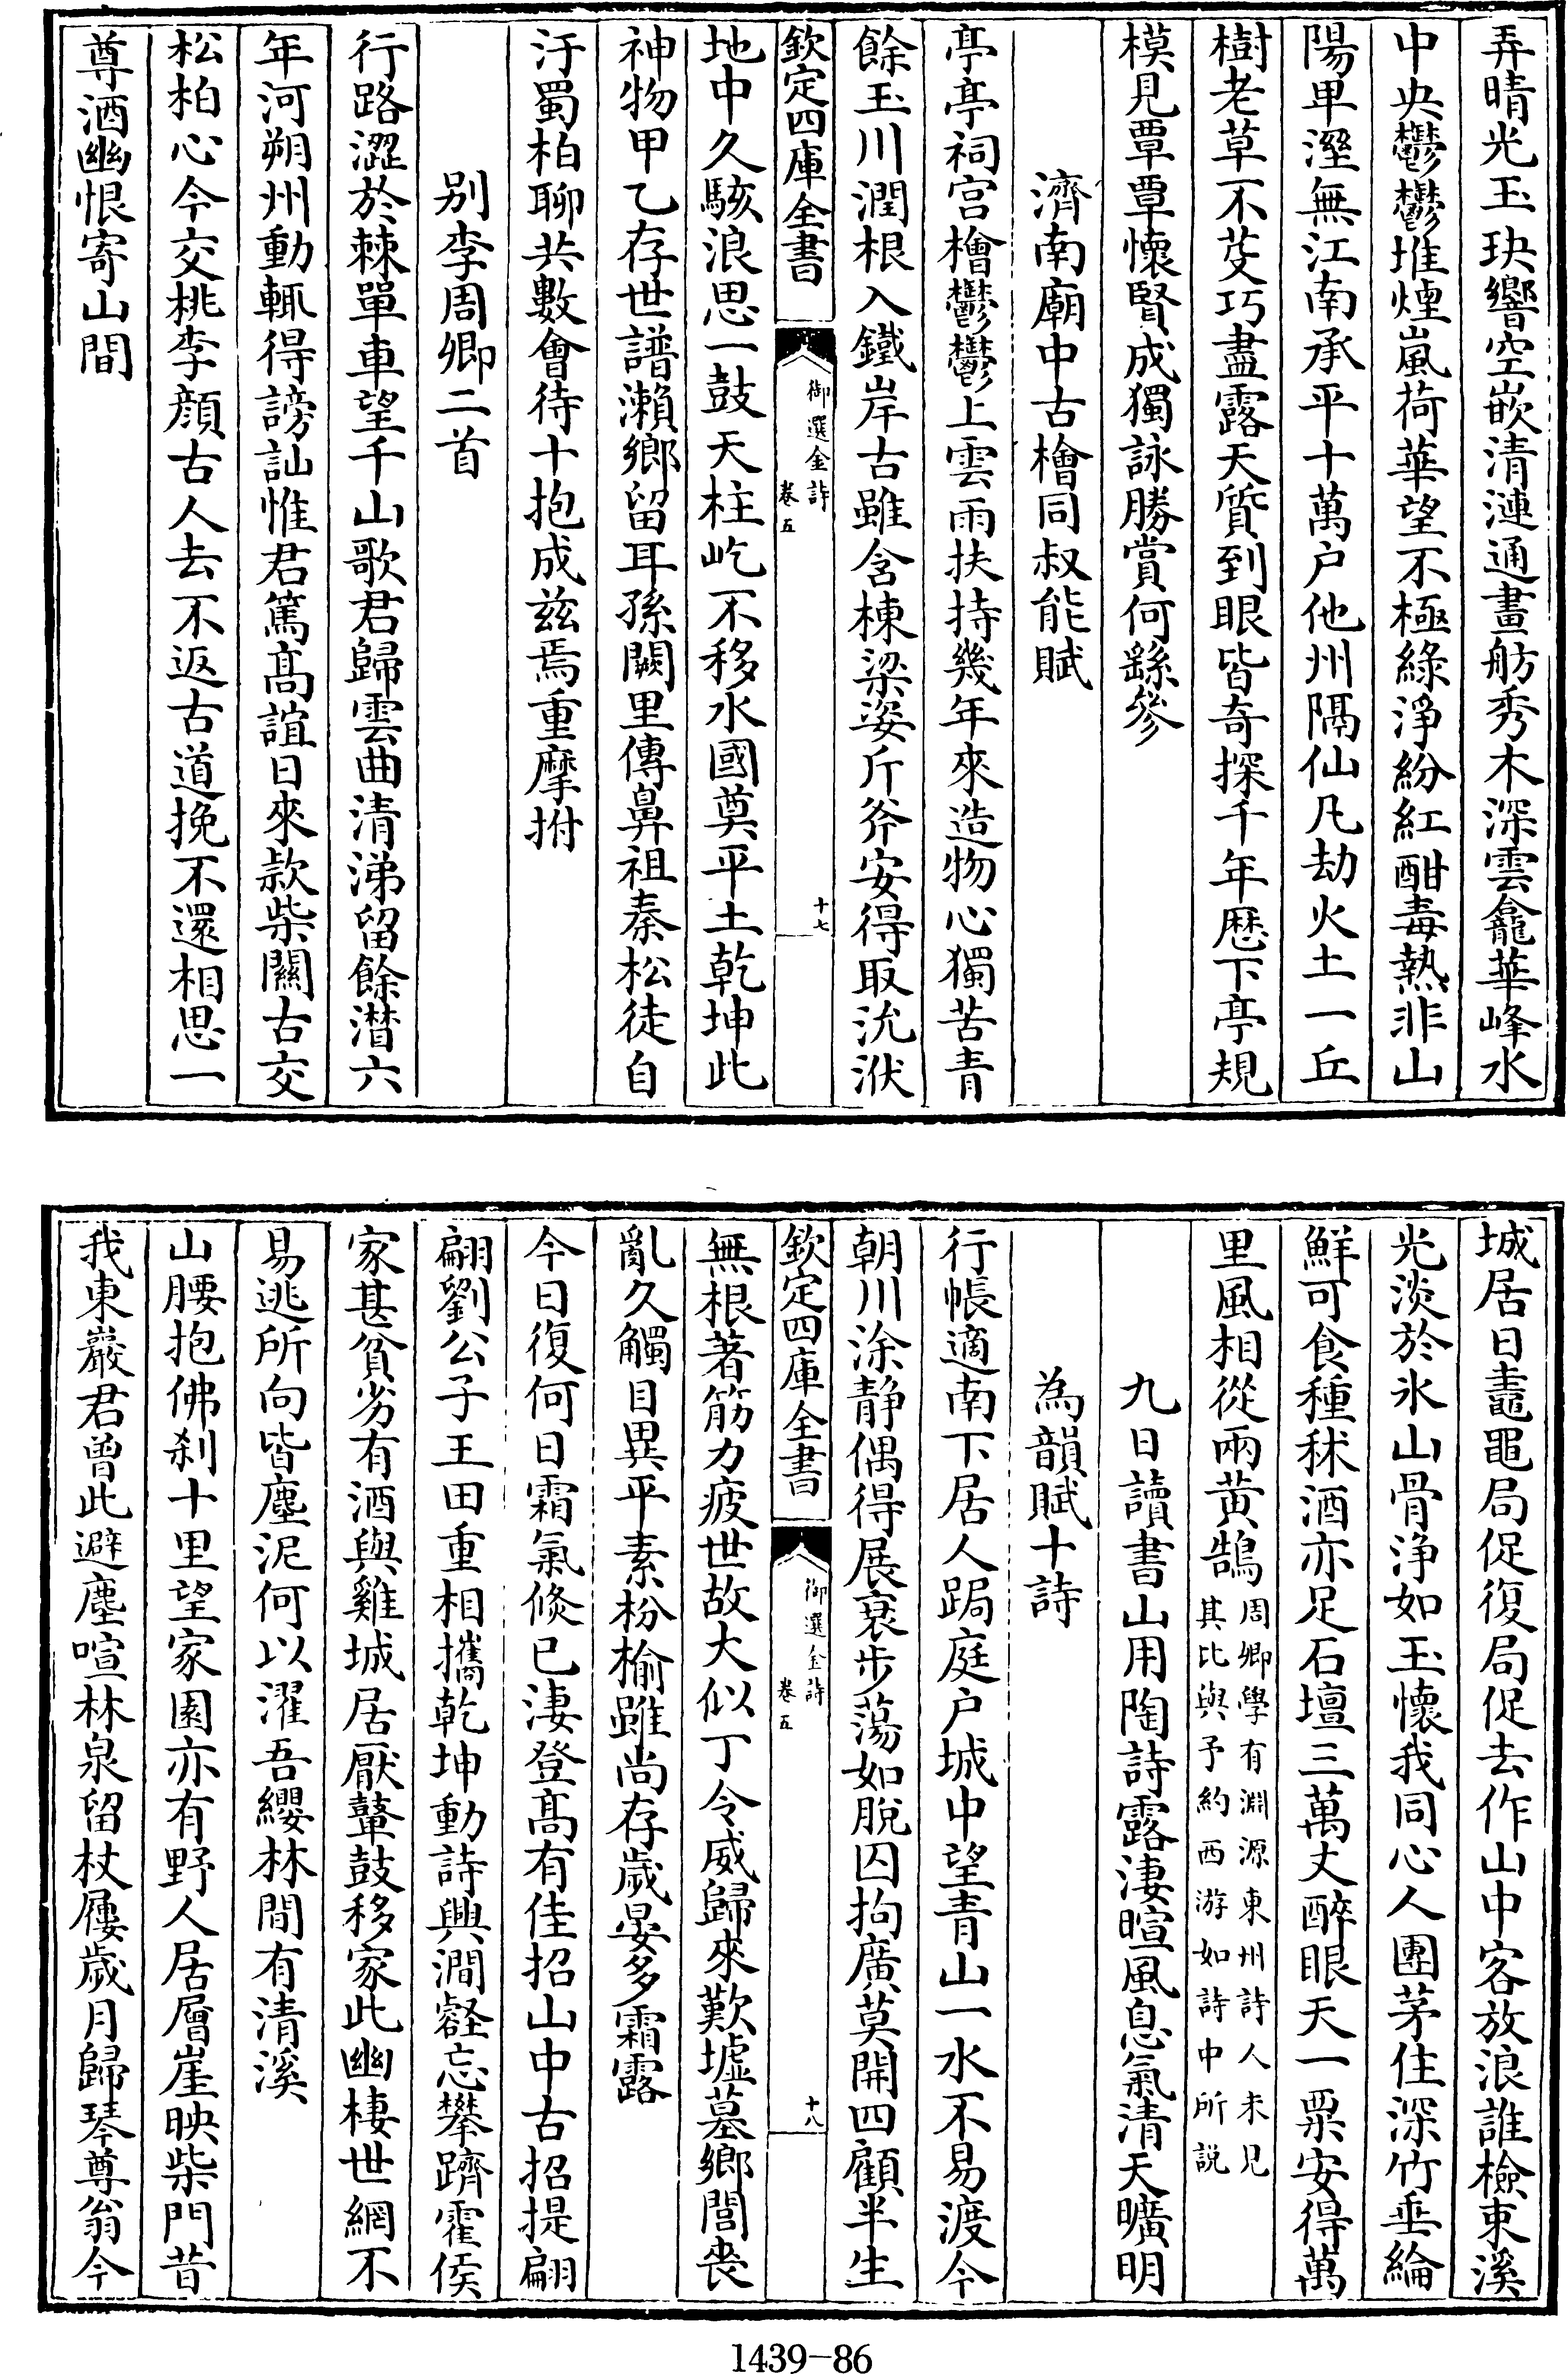 弄晴光玉玦響空嵌清漣通畫舫秀木深雲龕華峰水
中央鬱鬱堆煙嵐荷華望不極綠淨紛紅酣毒熱非山
陽卑溼無江南承平十萬户他州隔仙凡劫火土一丘
樹老草不芟巧盡露天質到眼皆奇探千年歴下亭規
模見覃覃懷賢成獨詠勝賞何繇參
濟南廟中古檜同叔能賦
亭亭祠宫檜鬱鬱上雲雨扶持幾年來造物心獨苦青
餘玉川潤根入鐵岸古雖含棟梁姿斤斧安得取沇洑
欽定四庫全書
御選金詩
卷五
十七
地中久駭浪思一鼓天柱屹不移水國奠平土乾坤此
神物甲乙存世譜瀨鄉留耳孫闕里傳鼻祖秦松徒自
汙蜀柏聊共數會待十抱成兹焉重摩拊
别李周卿二首
行路澀於棘單車望千山歌君歸雲曲清涕留餘潸六
年河朔州動輒得謗訕惟君篤高誼日來款柴關古交
松柏心今交桃李顔古人去不返古道挽不還相思一
尊酒幽恨寄山間
城居日䵷黽局促復局促去作山中客放浪誰檢束溪
光淡於氷山骨浄如玉懷我同心人團茅住深竹垂綸
鮮可食種秫酒亦足石壇三萬丈醉眼天一粟安得萬
里風相從兩黄鵠
周卿學有淵源東州詩人未見
其比與予約西游如詩中所説
九日讀書山用陶詩露凄暄風息氣清天曠明
為韻賦十詩
行帳適南下居人跼庭户城中望青山一水不易渡今
朝川涂静偶得展衰步蕩如脱囚拘廣莫開四顧半生
欽定四庫全書
御選金詩
卷五
十八
無根著筋力疲世故大似丁令威歸來歎墟墓鄉閭喪
亂久觸目異平素枌榆雖尚存歲晏多霜露
今日復何日霜氣倐已凄登高有佳招山中古招提翩
翩劉公子王田重相攜乾坤動詩興澗壑忘攀躋霍侯
家甚貧劣有酒與雞城居厭鼙鼓移家此幽棲世網不
易逃所向皆塵泥何以濯吾纓林間有清溪
山腰抱佛刹十里望家園亦有野人居層崖映柴門昔
我東巖君曾此避塵喧林泉留杖屨歲月歸琴尊翁今
1439—86